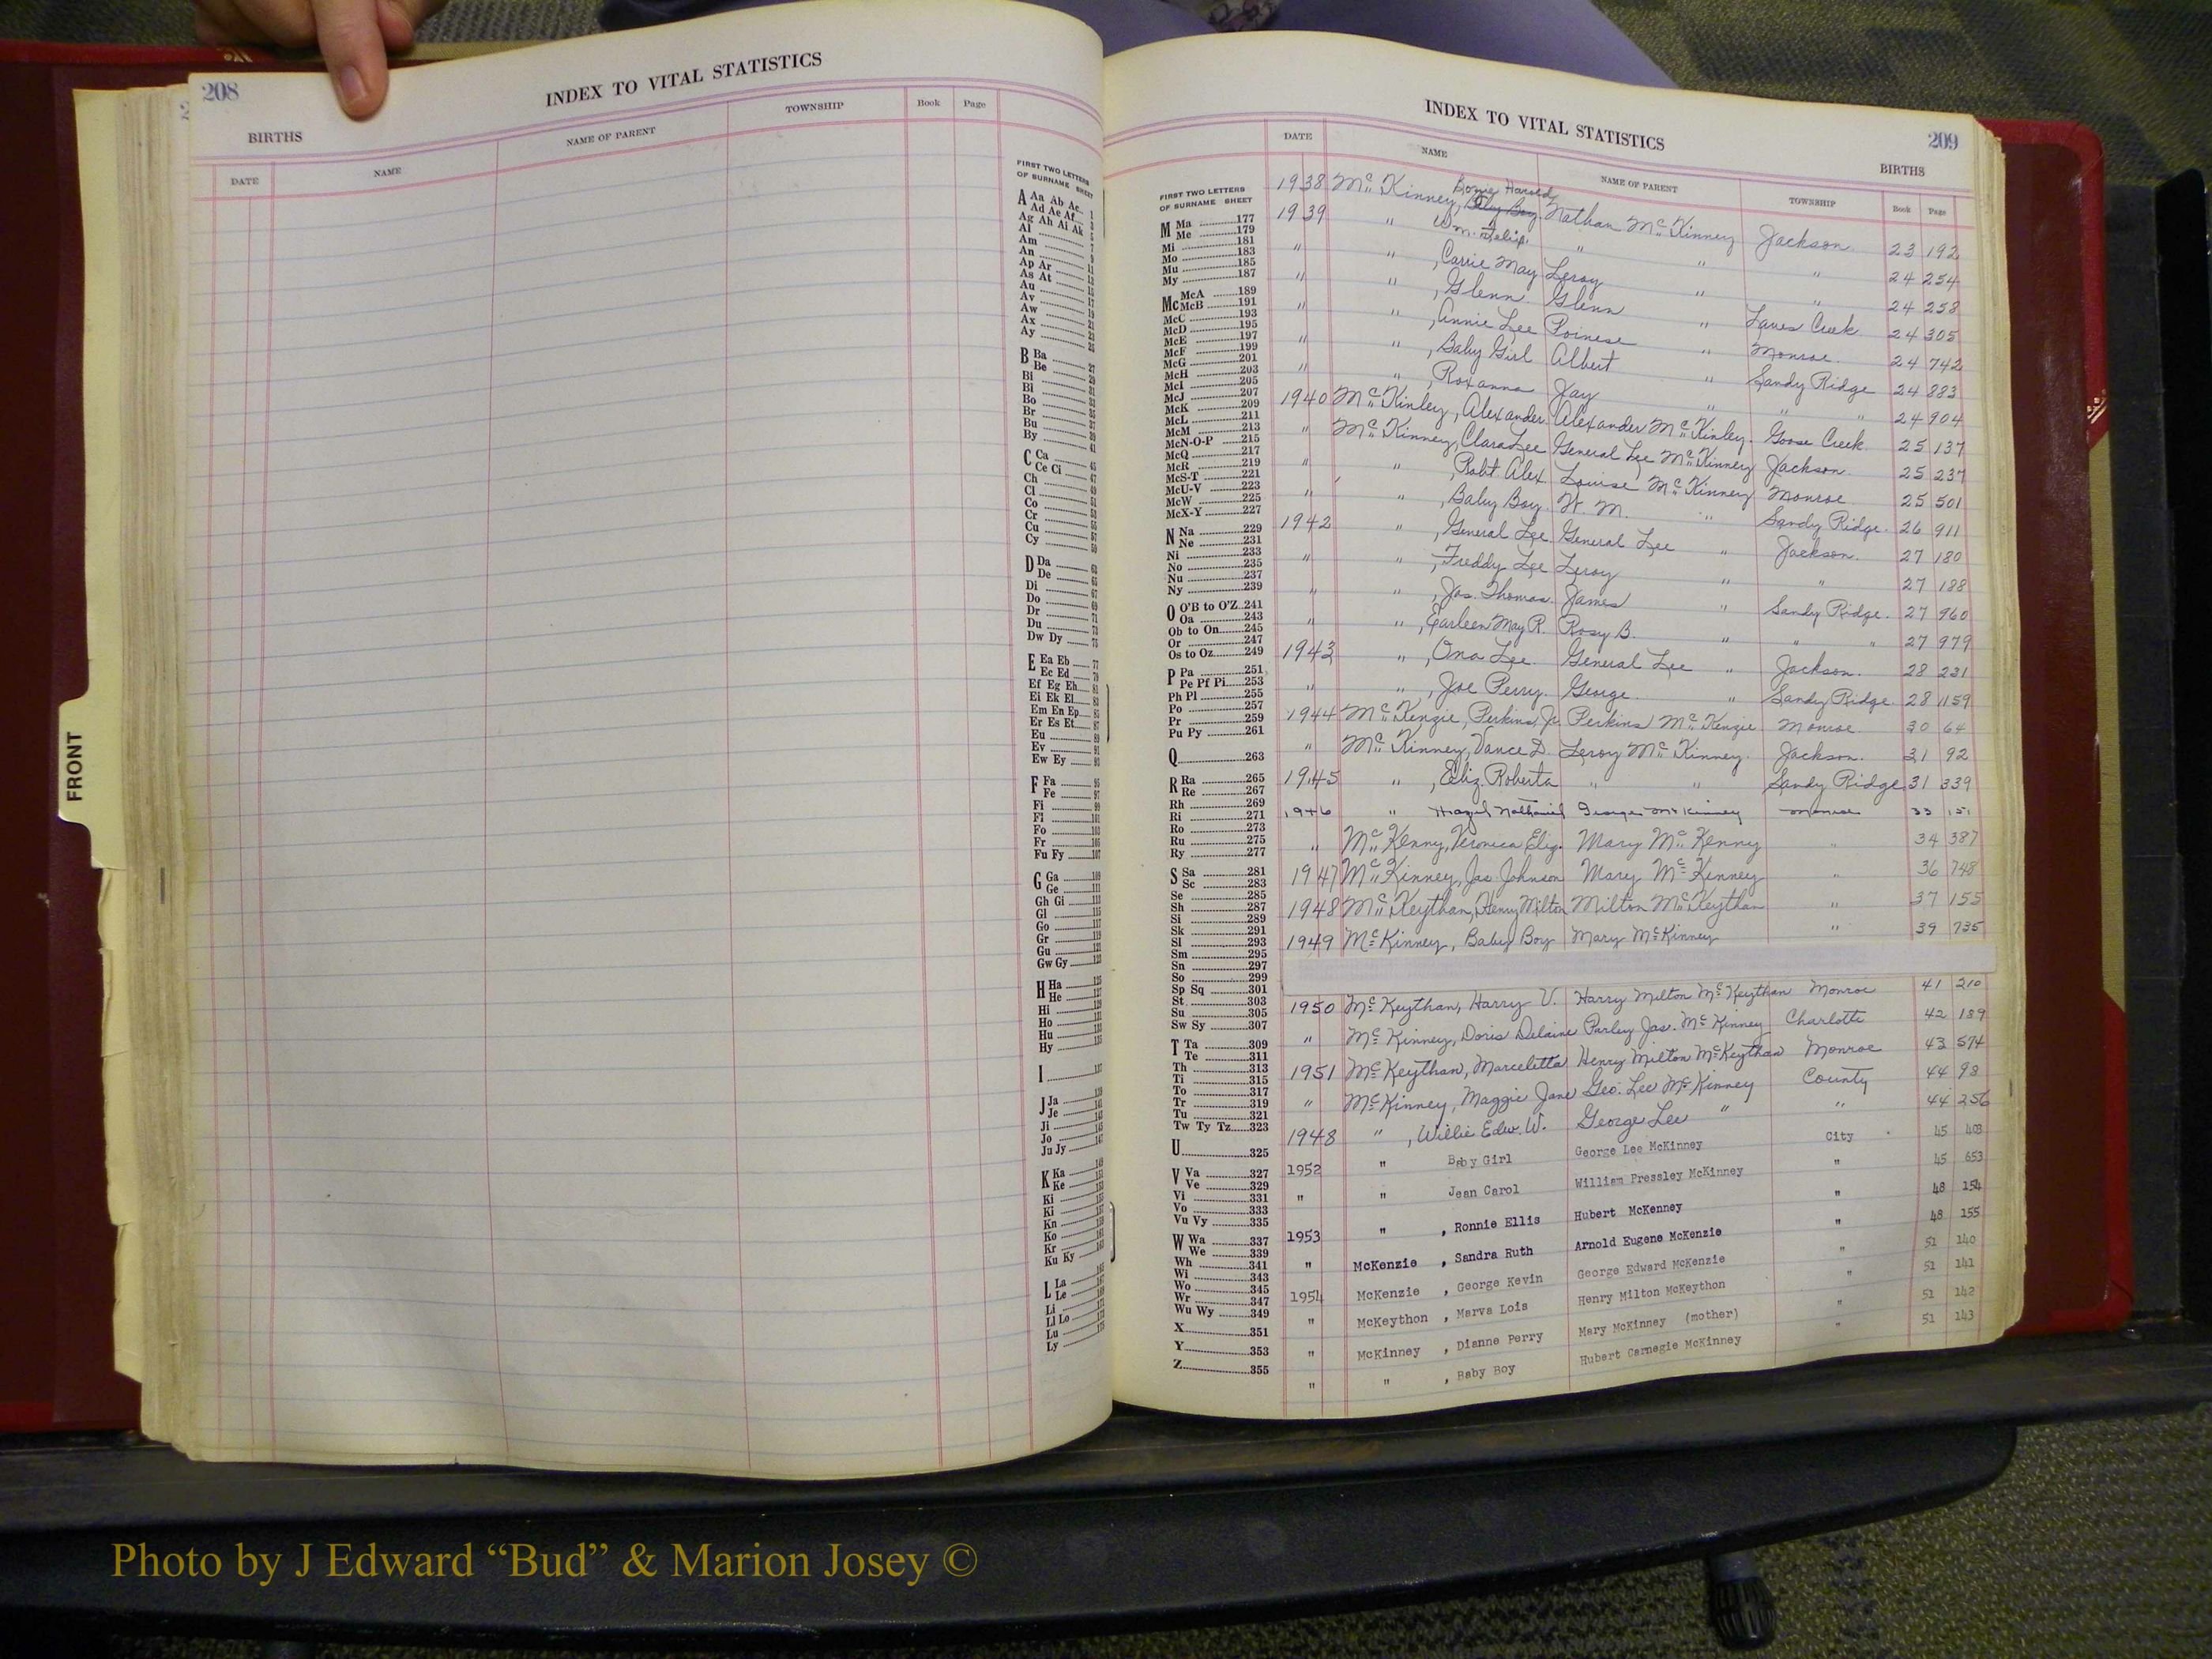 208
INDEX TO VITAL STATISTICS
BIRTHS
DATE NAME NAME OF PARENT TOWNSHIP Book Page
FIRST TWO LETTERS
OF SURNAME SHEET
A Aa Ab Ac
Ad Ae Af
Ag Ah Ai Ak
Al
Am
An
Ap Ar
As At
Au
Av
Aw
Ax
Ay
B Ba
Be
Bi
Bl
Bo
Br
Bu
By
C Ca
Ce Ci
Ch
Cl
Co
Cr
Cu
Cy
D Da
De
Di
Do
Dr
Du
Dw Dy
E Ea Eb
Ec Ed
Ef Eg Eh
Ei Ek El
Em En Ep
Er Es Et
Eu
Ev
Ew Ey
F Fa
Fe
Fi
Fl
Fo
Fr
Fu Fy
G Ga
Ge
Gh Gi
Gl
Go
Gr
Gu
Gw Gy
H Ha
He
Hi
Ho
Hu
Hy
I
J Ja
Je
Ji
Jo
Ju Jy
K Ka
Ke
Ki
Kl
Kn
Ko
Kr
Ku Ky
L La
Le
Li
Ll Lo
Lu
Ly
FRONT
INDEX TO VITAL STATISTICS
209
BIRTHS
DATE NAME NAME OF PARENT TOWNSHIP Book Page
FIRST TWO LETTERS
OF SURNAME SHEET
M Ma 177
Me 179
Mi 181
Mo 183
Mu 185
My 187
Mc McA 189
McB 191
McC 193
McD 195
McE 197
McF 199
McG 201
McH 203
McI 205
McJ 207
McK 209
McL 211
McM 213
McN-O-P 215
McQ 217
McR 219
McS-T 221
McU-V 223
McW 225
McX-Y 227
N Na 229
Ne 231
Ni 233
No 235
Nu 237
Ny 239
O O'B to O'Z 241
Oa 243
Ob to On 245
Or 247
Os to Oz 249
P Pa 251
Pe Pf Pi 253
Ph Pl 255
Po 257
Pr 259
Pu Py 261
Q 263
R Ra 265
Re 267
Rh 269
Ri 271
Ro 273
Ru 275
Ry 277
S Sa 281
Sc 283
Se 285
Sh 287
Si 289
Sk 291
Sl 293
Sm 295
Sn 297
So 299
Sp Sq 301
St 303
Su 305
Sw Sy 307
T Ta 309
Te 311
Th 313
Ti 315
To 317
Tr 319
Tu 321
Tw Ty Tz 323
U 325
V Va 327
Ve 329
Vi 331
Vo 333
Vu Vy 335
W Wa 337
We 339
Wh 341
Wi 343
Wo 345
Wr 347
Wu Wy 349
X 351
Y 353
Z 355
Harold
1938 McKinney, Baby Boy Nathan McKinney Jackson 23 192
1939 " Wm. " " " 24 254
" " , Carrie May Leroy " " 24 258
" " , Glenn Glenn " Lanes Creek 24 305
" " , Annie Lee " Monroe 24 742
" " , Baby Girl Albert " Sandy Ridge 24 883
" " , Roxanna Jay " " " 24 904
1940 McKinley, Alexander Alexander McKinley Goose Creek 25 137
" McKinney, Clara Lee General Lee McKinney Jackson 25 237
" " , Robt Alex Louise McKinney Monroe 25 501
" " , Baby Boy W. M. " Sandy Ridge 26 911
1942 " , General Lee General Lee " Jackson 27 180
" " , Freddy Lee Leroy " " 27 188
" " , Jas. Thomas James " Sandy Ridge 27 960
" " , Earleen May R. Rosy B. " " " 27 979
1943 " , Ona Lee General Lee " Jackson 28 231
" " , Joe Perry George " Sandy Ridge 28 1159
1944 McKenzie, Perkins Jr. Perkins McKenzie Monroe 30 64
" McKinney, Vance D. Leroy McKinney Jackson 31 92
1945 " , Eliz. Roberta " " Sandy Ridge 31 339
1946 " Hazel Nathaniel George McKinney Monroe 33 151
" McKenny, Veronica Eliz. Mary McKenny " 34 387
1947 McKinney, Jas. Johnson Mary McKinney " 36 748
1948 McKeythan, Henry Milton Milton McKeythan " 37 155
1949 McKinney, Baby Boy Mary McKinney " 39 735
1950 McKeythan, Harry V. Harry Milton McKeythan Monroe 41 210
" McKinney, Doris Delaine Parley Jas. McKinney Charlotte 42 189
1951 McKeythan, Marceletta Henry Milton McKeythan Monroe 43 574
" McKinney, Maggie Jane Geo. Lee McKinney County 44 98
1948 " , Willie Edw. W. George Lee " " 44 256
1952 " Baby Girl George Lee McKinney City 45 403
" " Jean Carol William Pressley McKinney " 45 653
1953 " , Ronnie Ellis Hubert McKenney " 48 154
" McKenzie , Sandra Ruth Arnold Eugene McKenzie " 48 155
1954 McKenzie , George Kevin George Edward McKenzie " 51 140
" McKeython , Marva Lois Henry Milton McKeython " 51 141
" McKinney , Dianne Perry Mary McKinney (mother) " 51 142
" " , Baby Boy Hubert Carnegie McKinney " 51 143
Photo by J Edward “Bud” & Marion Josey ©